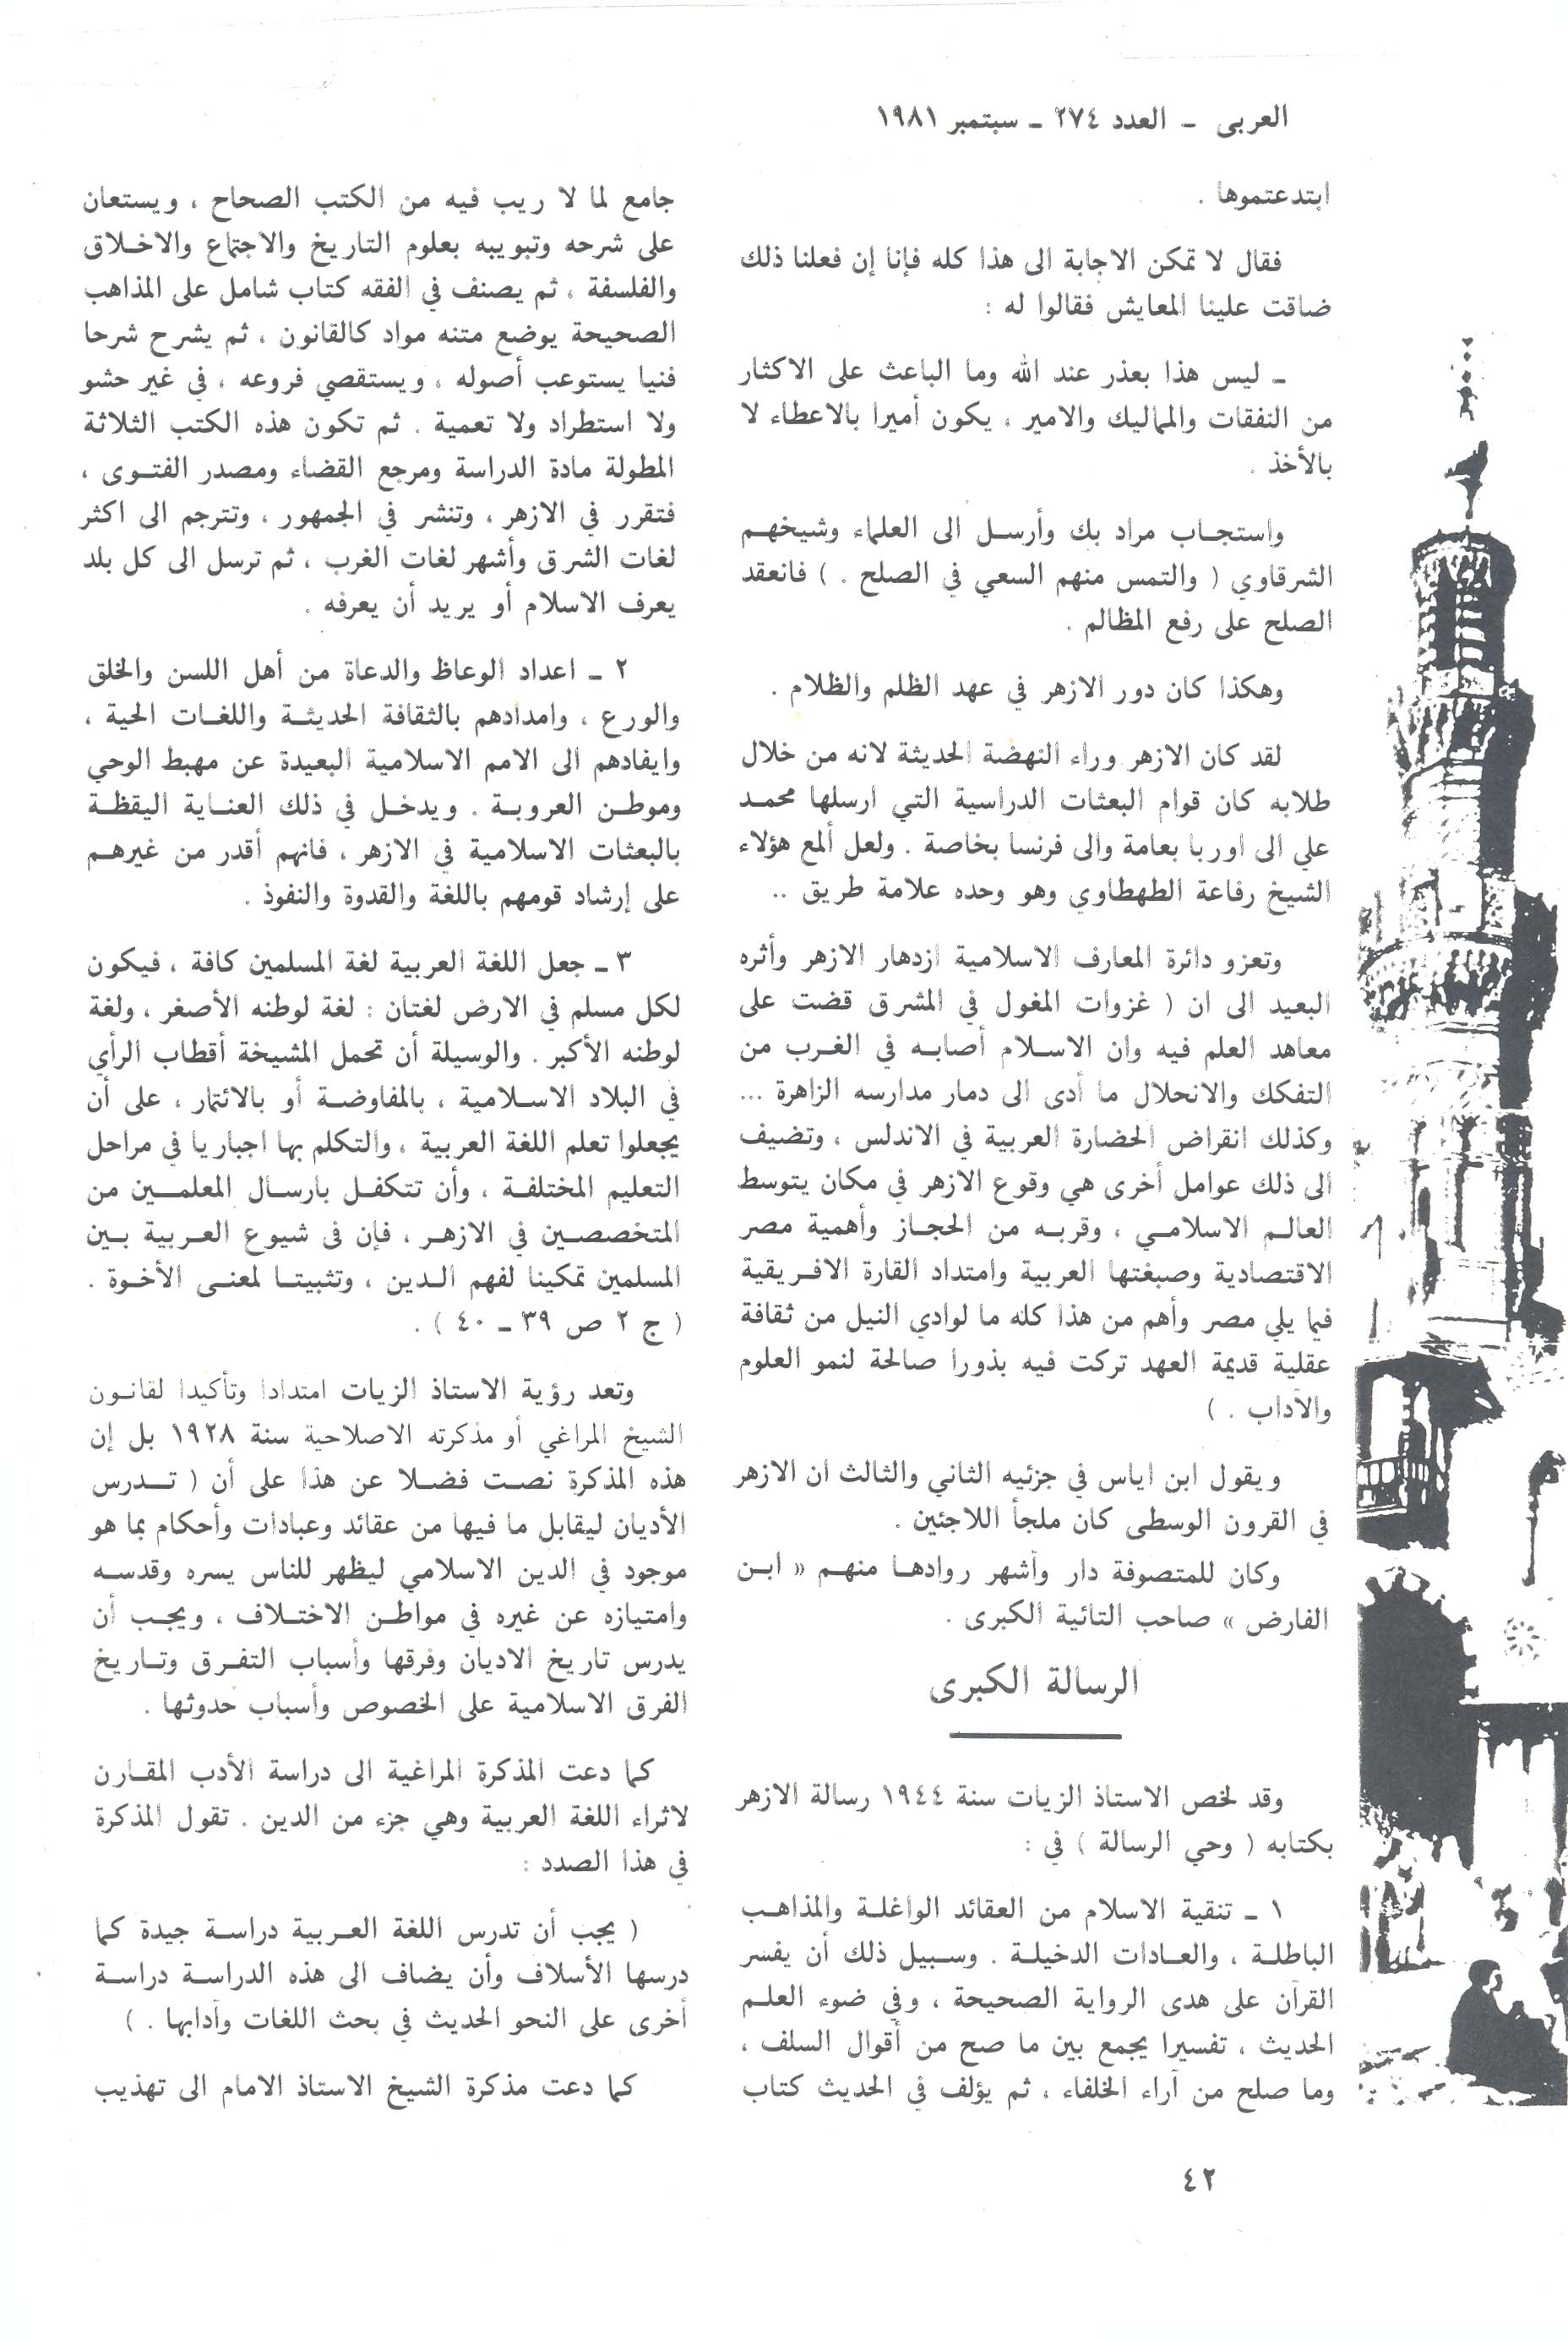 العربى - العدد ٢٧٤ - سبتمبر ١٩٨١
ابتدعتموها .
فقال لا تمكن الاجابة الى هذا كله فإنا إن فعلنا ذلك
ضاقت علينا المعايش فقالوا له :
- ليس هذا بعذر عند الله وما الباعث على الاكثار
من النفقات والمماليك والامير ، يكون أميرا بالاعطاء لا
بالأخذ .
واستجاب مراد بك وأرسل الى العلماء وشيخهم
الشرقاوي ( والتمس منهم السعي في الصلح . ) فانعقد
الصلح على رفع المظالم .
وهكذا كان دور الازهر في عهد الظلم والظلام .
لقد كان الازهر وراء النهضة الحديثة لانه من خلال
طلابه كان قوام البعثات الدراسية التي ارسلها محمد
علي الى اوربا بعامة والى فرنسا بخاصة . ولعل ألمع هؤلاء
الشيخ رفاعة الطهطاوي وهو وحده علامة طريق ..
وتعزو دائرة المعارف الاسلامية ازدهار الازهر وأثره
البعيد الى ان ( غزوات المغول في المشرق قضت على
معاهد العلم فيه وان الاسلام أصابه في الغرب من
التفكك والانحلال ما أدى الى دمار مدارسه الزاهرة ...
وكذلك انقراض الحضارة العربية في الاندلس ، وتضيف
الى ذلك عوامل أخرى هي وقوع الازهر في مكان يتوسط
العالم الاسلامي ، وقربه من الحجاز وأهمية مصر
الاقتصادية وصبغتها العربية وامتداد القارة الافريقية
فيما يلي مصر وأهم من هذا كله ما لوادي النيل من ثقافة
عقلية قديمة العهد تركت فيه بذورا صالحة لنمو العلوم
والآداب . )
ويقول ابن اياس في جزئيه الثاني والثالث ان الازهر
في القرون الوسطى كان ملجأ اللاجئين .
وكان للمتصوفة دار وأشهر روادها منهم « ابن
الفارض » صاحب التائية الكبرى .
الرسالة الكبرى
وقد لخص الاستاذ الزيات سنة ١٩٤٤ رسالة الازهر
بكتابه ( وحي الرسالة ) في :
١ - تنقية الاسلام من العقائد الواغلة والمذاهب
الباطلة ، والعادات الدخيلة . وسبيل ذلك أن يفسر
القرآن على هدى الرواية الصحيحة ، وفي ضوء العلم
الحديث ، تفسيرا يجمع بين ما صح من أقوال السلف ،
وما صلح من آراء الخلفاء ، ثم يؤلف في الحديث كتاب
جامع لما لا ريب فيه من الكتب الصحاح ، ويستعان
على شرحه وتبويبه بعلوم التاريخ والاجتماع والاخلاق
والفلسفة ، ثم يصنف في الفقه كتاب شامل على المذاهب
الصحيحة يوضع متنه مواد كالقانون ، ثم يشرح شرحا
فنيا يستوعب أصوله ، ويستقصي فروعه ، في غير حشو
ولا استطراد ولا تعمية . ثم تكون هذه الكتب الثلاثة
المطولة مادة الدراسة ومرجع القضاء ومصدر الفتوى ،
فتقرر في الازهر ، وتنشر في الجمهور ، وتترجم الى اكثر
لغات الشرق وأشهر لغات الغرب ، ثم ترسل الى كل بلد
يعرف الاسلام أو يريد أن يعرفه .
٢ - اعداد الوعاظ والدعاة من أهل اللسن والخلق
والورع ، وامدادهم بالثقافة الحديثة واللغات الحية ،
وايفادهم الى الامم الاسلامية البعيدة عن مهبط الوحي
وموطن العروبة . ويدخل في ذلك العناية اليقظة
بالبعثات الاسلامية في الازهر ، فانهم أقدر من غيرهم
على إرشاد قومهم باللغة والقدوة والنفوذ .
٣ - جعل اللغة العربية لغة المسلمين كافة ، فيكون
لكل مسلم في الارض لغتان : لغة لوطنه الأصغر ، ولغة
لوطنه الأكبر . والوسيلة أن تحمل المشيخة أقطاب الرأي
في البلاد الاسلامية ، بالمفاوضة أو بالائتمار ، على أن
يجعلوا تعلم اللغة العربية ، والتكلم بها اجباريا في مراحل
التعليم المختلفة ، وأن تتكفل بارسال المعلمين من
المتخصصين في الازهر ، فإن فى شيوع العربية بين
المسلمين تمكينا لفهم الدين ، وتثبيتا لمعنى الأخوة .
( ج ٢ ص ٣٩ - ٤٠ ) .
وتعد رؤية الاستاذ الزيات امتدادا وتأكيدا لقانون
الشيخ المراغي أو مذكرته الاصلاحية سنة ١٩٢٨ بل إن
هذه المذكرة نصت فضلا عن هذا على أن ( تدرس
الأديان ليقابل ما فيها من عقائد وعبادات وأحكام بما هو
موجود في الدين الاسلامي ليظهر للناس يسره وقدسه
وامتيازه عن غيره في مواطن الاختلاف ، ويجب أن
يدرس تاريخ الاديان وفرقها وأسباب التفرق وتاريخ
الفرق الاسلامية على الخصوص وأسباب حدوثها .
كما دعت المذكرة المراغية الى دراسة الأدب المقارن
لاثراء اللغة العربية وهي جزء من الدين . تقول المذكرة
في هذا الصدد :
( يجب أن تدرس اللغة العربية دراسة جيدة كما
درسها الأسلاف وأن يضاف الى هذه الدراسة دراسة
أخرى على النحو الحديث في بحث اللغات وآدابها . )
كما دعت مذكرة الشيخ الاستاذ الامام الى تهذيب
٤٢